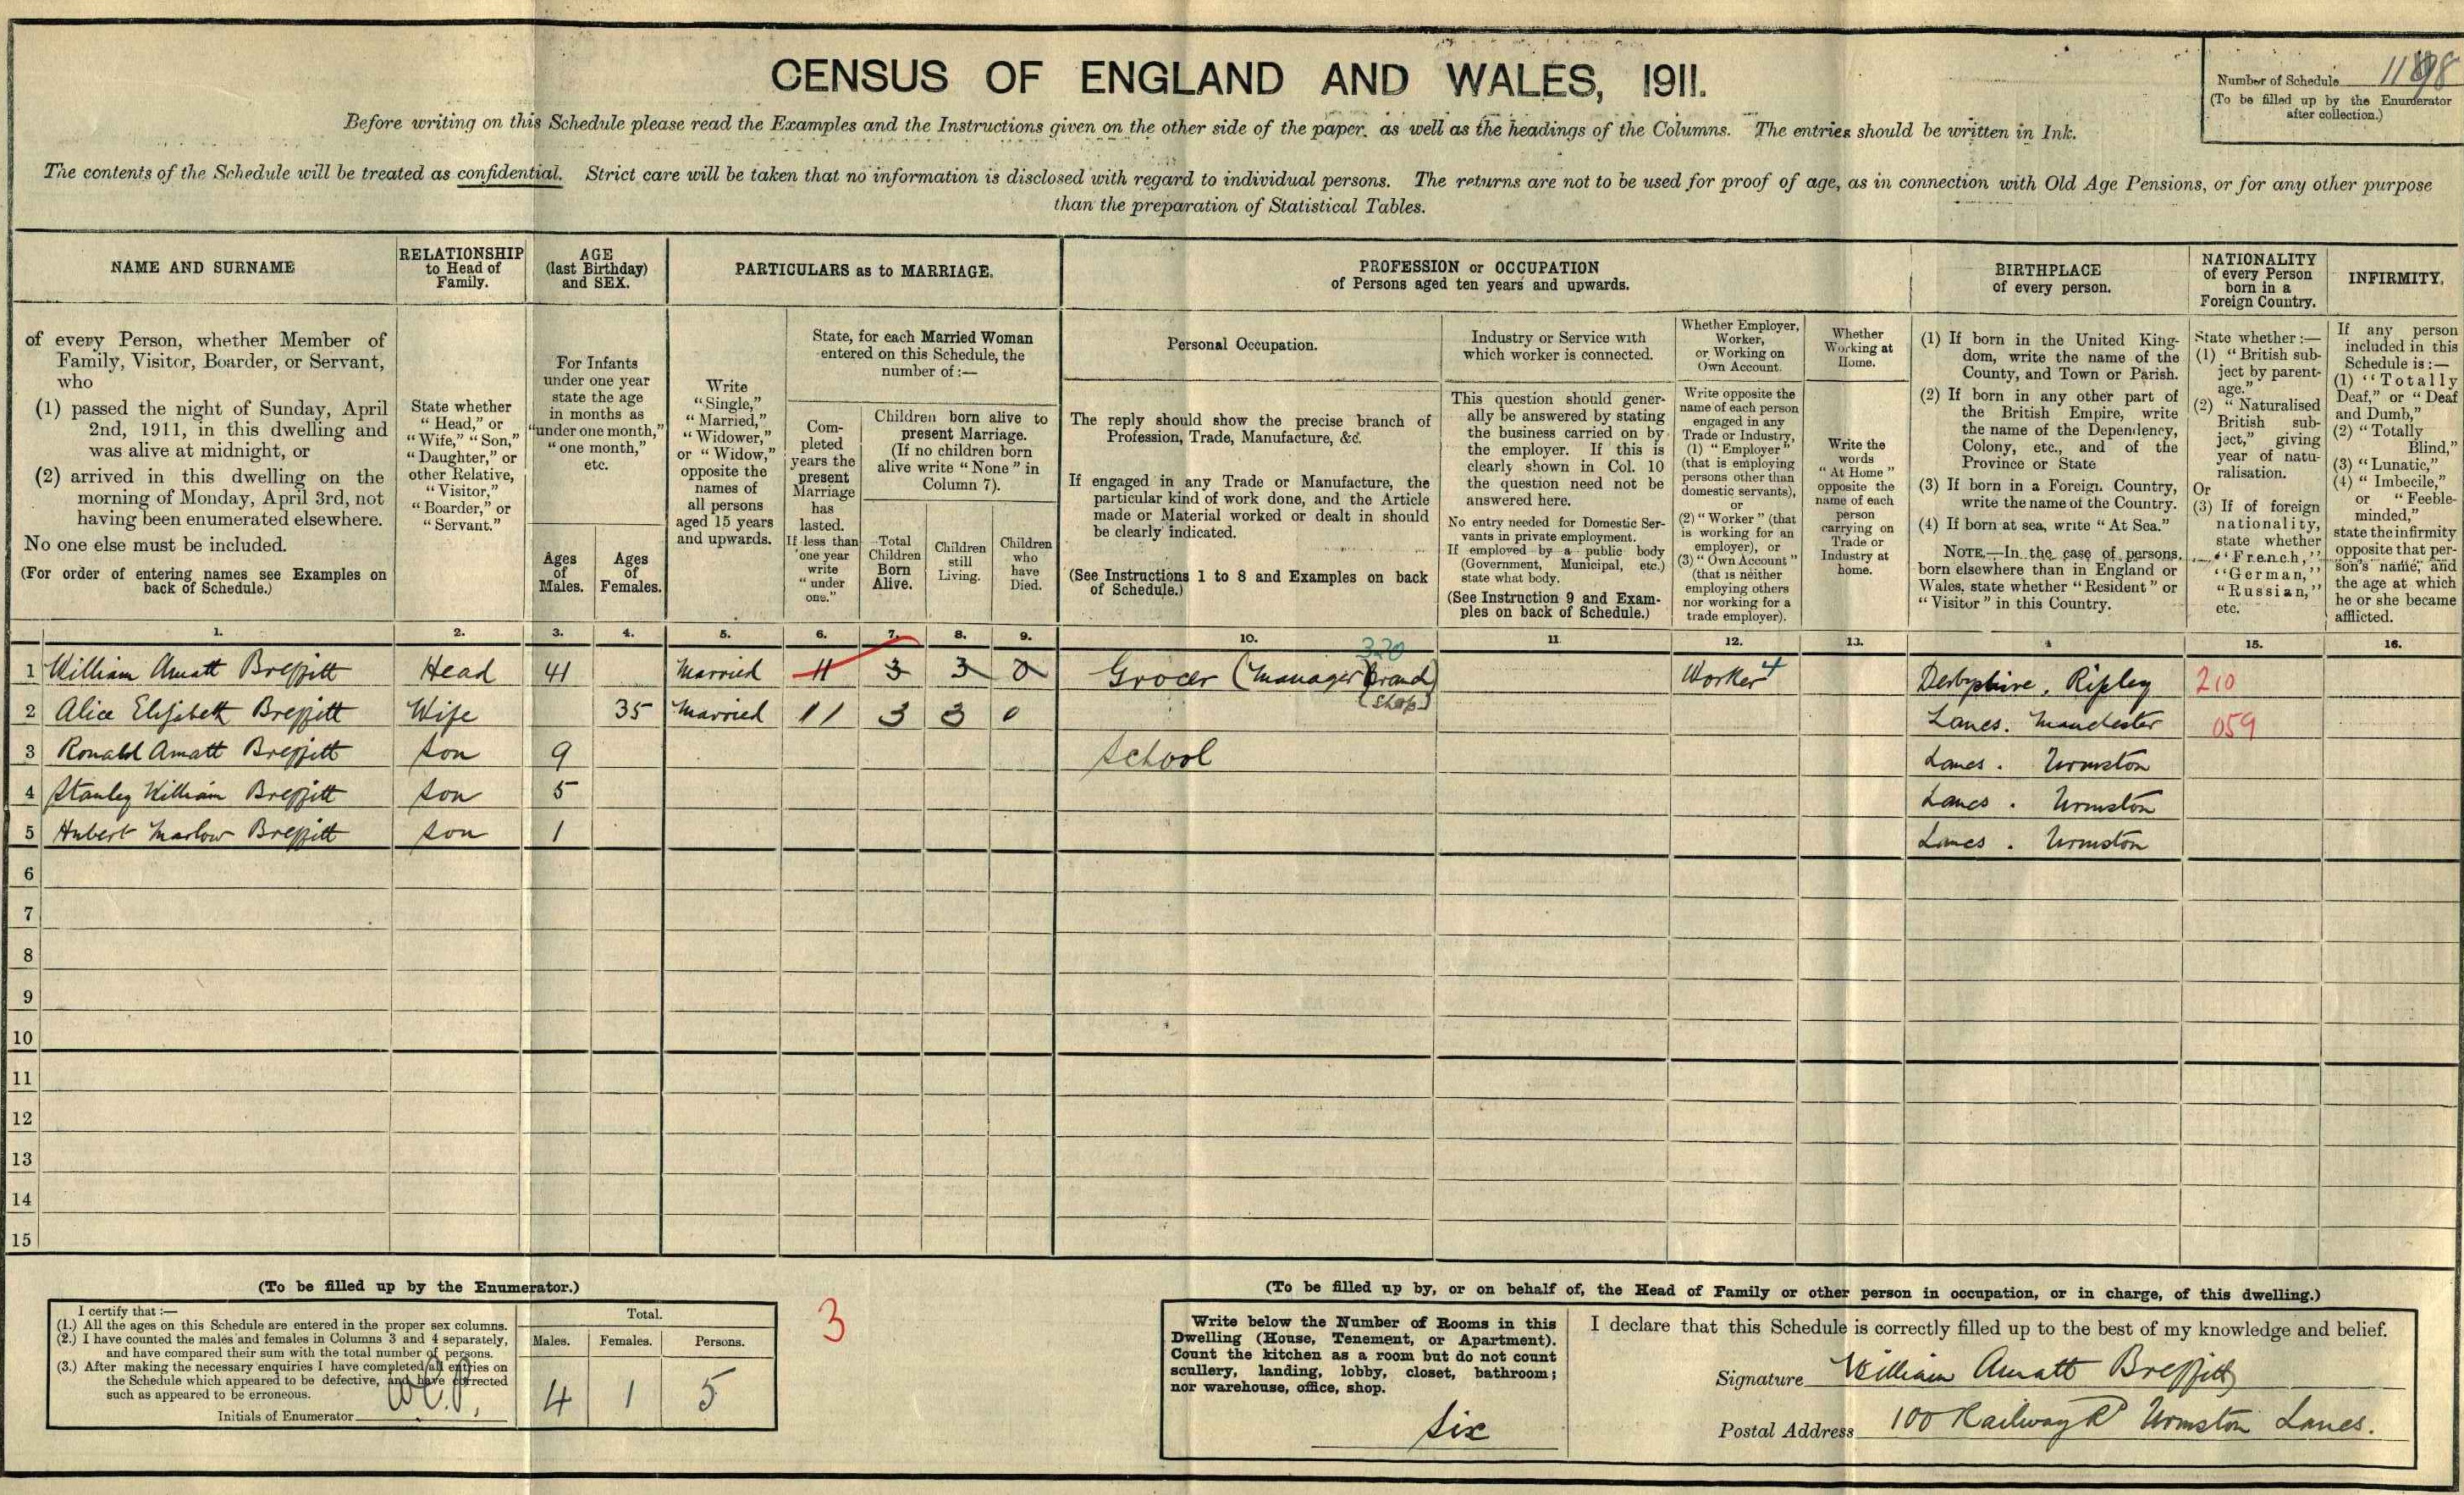 CENSUS OF ENGLAND AND WALES, 1911.
Number of Schedule
(To be filled up by the Enumerator
after collection.)
Before writing on this Schedule please read the Examples and the Instructions given on the other side of the paper. as well as the headings of the Columns. The entries should be written in Ink.
The contents of the Schedule will be treated as confidential. Strict care will be taken that no information is disclosed with regard to individual persons. The returns are not to be used for proof of age, as in connection with Old Age Pensions, or for any other purpose
than the preparation of Statistical Tables.
NAME AND SURNAME
of every Person, whether Member of
Family, Visitor, Boarder, or Servant,
who
(1) passed the night of Sunday, April
2nd, 1911, in this dwelling and
was alive at midnight, or
(2) arrived in this dwelling on the
morning of Monday, April 3rd, not
having been enumerated elsewhere.
No one else must be included.
(For order of entering names see Examples on
back of Schedule.)
RELATIONSHIP
to Head of
Family.
State whether
"Head," or
"Wife," "Son,"
"Daughter," or
other Relative,
"Visitor,"
"Boarder," or
"Servant."
AGE
(last Birthday)
and SEX.
For Infants
under one year
state the age
in months as
"under one month,"
"one month,"
etc.
Ages
of
Males.
Ages
of
Females.
PARTICULARS as to MARRIAGE.
Write
"Single,"
"Married,"
"Widower,"
or "Widow,"
opposite the
names of
all persons
aged 15 years
and upwards.
State, for each Married Woman
entered on this Schedule, the
number of :—
Com-
pleted
years the
present
Marriage
has
lasted.
If less than
one year
write
"under
one."
Children born alive to
present Marriage.
(If no children born
alive write "None" in
Column 7).
Total
Children
Born
Alive.
Children
still
Living.
Children
who
have
Died.
PROFESSION or OCCUPATION
of Persons aged ten years and upwards.
Personal Occupation.
The reply should show the precise branch of
Profession, Trade, Manufacture, &c.
If engaged in any Trade or Manufacture, the
particular kind of work done, and the Article
made or Material worked or dealt in should
be clearly indicated.
(See Instructions 1 to 8 and Examples on back
of Schedule.)
Industry or Service with
which worker is connected.
This question should gener-
ally be answered by stating
the business carried on by
the employer. If this is
clearly shown in Col. 10
the question need not be
answered here.
No entry needed for Domestic Ser-
vants in private employment.
If employed by a public body
(Government, Municipal, etc.)
state what body.
(See Instruction 9 and Exam-
ples on back of Schedule.)
Whether Employer,
Worker,
or Working on
Own Account.
Write opposite the
name of each person
engaged in any
Trade or Industry,
(1) "Employer"
(that is employing
persons other than
domestic servants),
or
(2) "Worker" (that
is working for an
employer), or
(3) "Own Account"
(that is neither
employing others
nor working for a
trade employer).
Whether
Working at
Home.
Write the
words
"At Home"
opposite the
name of each
person
carrying on
Trade or
Industry at
home.
BIRTHPLACE
of every person.
(1) If born in the United King-
dom, write the name of the
County, and Town or Parish.
(2) If born in any other part of
the British Empire, write
the name of the Dependency,
Colony, etc., and of the
Province or State
(3) If born in a Foreign Country,
write the name of the Country.
(4) If born at sea, write "At Sea."
NOTE.—In the case of persons
born elsewhere than in England or
Wales, state whether "Resident" or
"Visitor" in this Country.
NATIONALITY
of every Person
born in a
Foreign Country.
State whether :—
(1) "British sub-
ject by parent-
age."
(2) "Naturalised
British sub-
ject," giving
year of natu-
ralisation.
Or
(3) If of foreign
nationality,
state whether
"French,"
"German,"
"Russian,"
etc.
INFIRMITY.
If any person
included in this
Schedule is :—
(1) "Totally
Deaf," or "Deaf
and Dumb,"
(2) "Totally
Blind,"
(3) "Lunatic,"
(4) "Imbecile,"
or "Feeble-
minded,"
state the infirmity
opposite that per-
son's name, and
the age at which
he or she became
afflicted.
1. 2. 3. 4. 5. 6. 7. 8. 9. 10. 11 12. 13. 15. 16.
320
1 William Amatt Breffitt Head 41 Married 11 3 3 0 Grocer (Manager Branch) Worker 4 Derbyshire, Ripley 210
(Shop)
2 Alice Elizabeth Breffitt Wife 35 Married 11 3 3 0 Lancs. Manchester 059
3 Ronald Amatt Breffitt Son 9 School Lancs. Urmston
4 Stanley William Breffitt Son 5 Lancs. Urmston
5 Hubert Marlow Breffitt Son 1 Lancs. Urmston
6
7
8
9
10
11
12
13
14
15
(To be filled up by the Enumerator.)
I certify that :—
(1.) All the ages on this Schedule are entered in the proper sex columns.
(2.) I have counted the males and females in Columns 3 and 4 separately,
and have compared their sum with the total number of persons.
(3.) After making the necessary enquiries I have completed all entries on
the Schedule which appeared to be defective, and have corrected
such as appeared to be erroneous.
Initials of Enumerator
Total.
Males. Females. Persons.
4 1 5
3
(To be filled up by, or on behalf of, the Head of Family or other person in occupation, or in charge, of this dwelling.)
Write below the Number of Rooms in this
Dwelling (House, Tenement, or Apartment).
Count the kitchen as a room but do not count
scullery, landing, lobby, closet, bathroom;
nor warehouse, office, shop.
Six
I declare that this Schedule is correctly filled up to the best of my knowledge and belief.
Signature William Amatt Breffitt
Postal Address 100 Railway Rd Urmston Lancs.